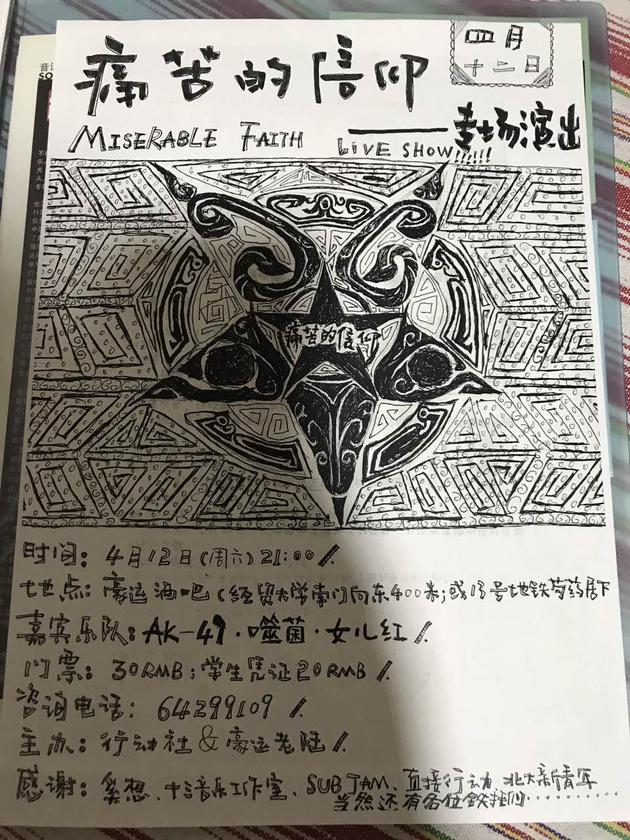 痛苦的信仰
四月
十二日
MISERABLE FAITH LIVE SHOW!!!!!! ——专场演出
痛苦的信仰
时间：4月12日（周六）21:00
地点：豪运酒吧（经贸大学南门向东400米；或13号地铁芍药居下
嘉宾乐队：AK-47·噬菌·女儿红
门票：30RMB；学生凭证20RMB
咨询电话：64299109
主办：行动社&豪运老陆
感谢：奚想、十三音乐工作室、SUBJAM、直接行动、北大新青年
当然还有各位铁托们……